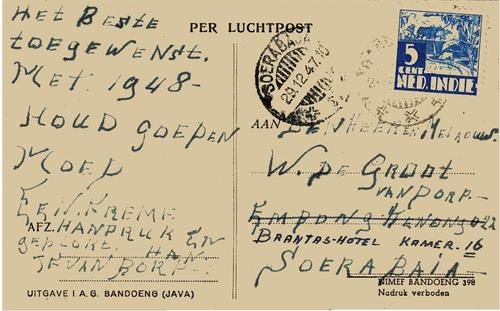 HET BESTE
TOEGEWENST.
MET 1948-
HOUD GOEDEN
MOED
AFZ. HANDRUK EN
HAN
VAN DORP-
UITGAVE I.A.G. BANDOENG (JAVA)
PER LUCHTPOST
SOERABAJA
29.12.47.10
5
CENT
NED. INDIE
AAN DEN HEER EN MEVROUW.
W. DE GROOT
VAN DORP-
EMBONG KENONGO 22
BRANTAS-HOTEL KAMER. 16
SOERABAIA-
NIMEF BANDOENG 398
Nadruk verboden